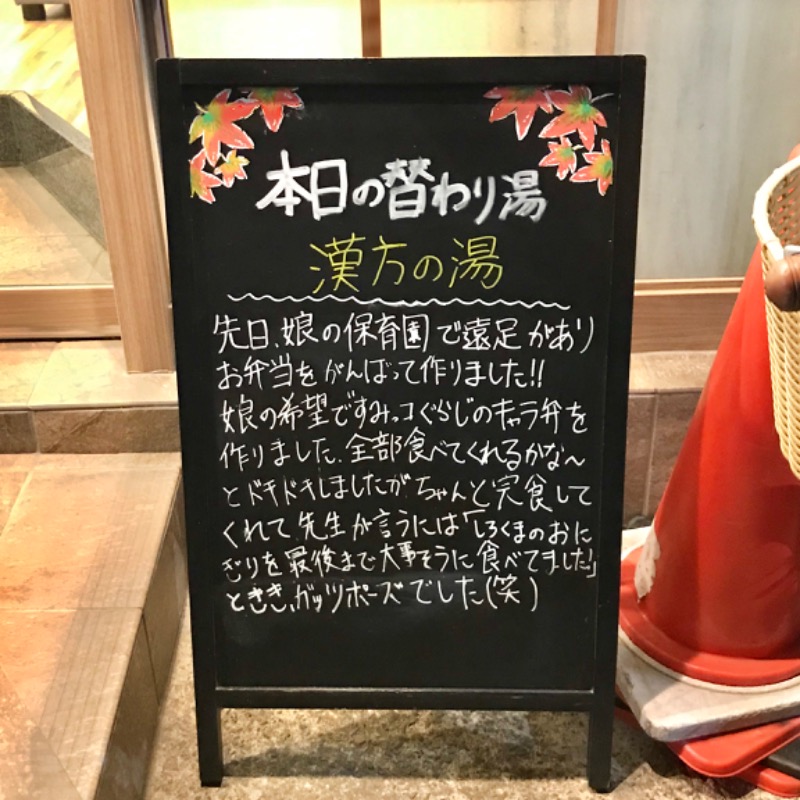 本日の替わり湯
漢方の湯
先日、娘の保育園で遠足があり
お弁当をがんばって作りました!!
娘の希望ですみっコぐらしのキャラ弁を
作りました、全部食べてくれるかな〜
とドキドキしましたが、ちゃんと完食して
くれて、先生が言うには「しろくまのおに
ぎりを最後まで大事そうに食べてました」
ときき、ガッツポーズでした(笑)